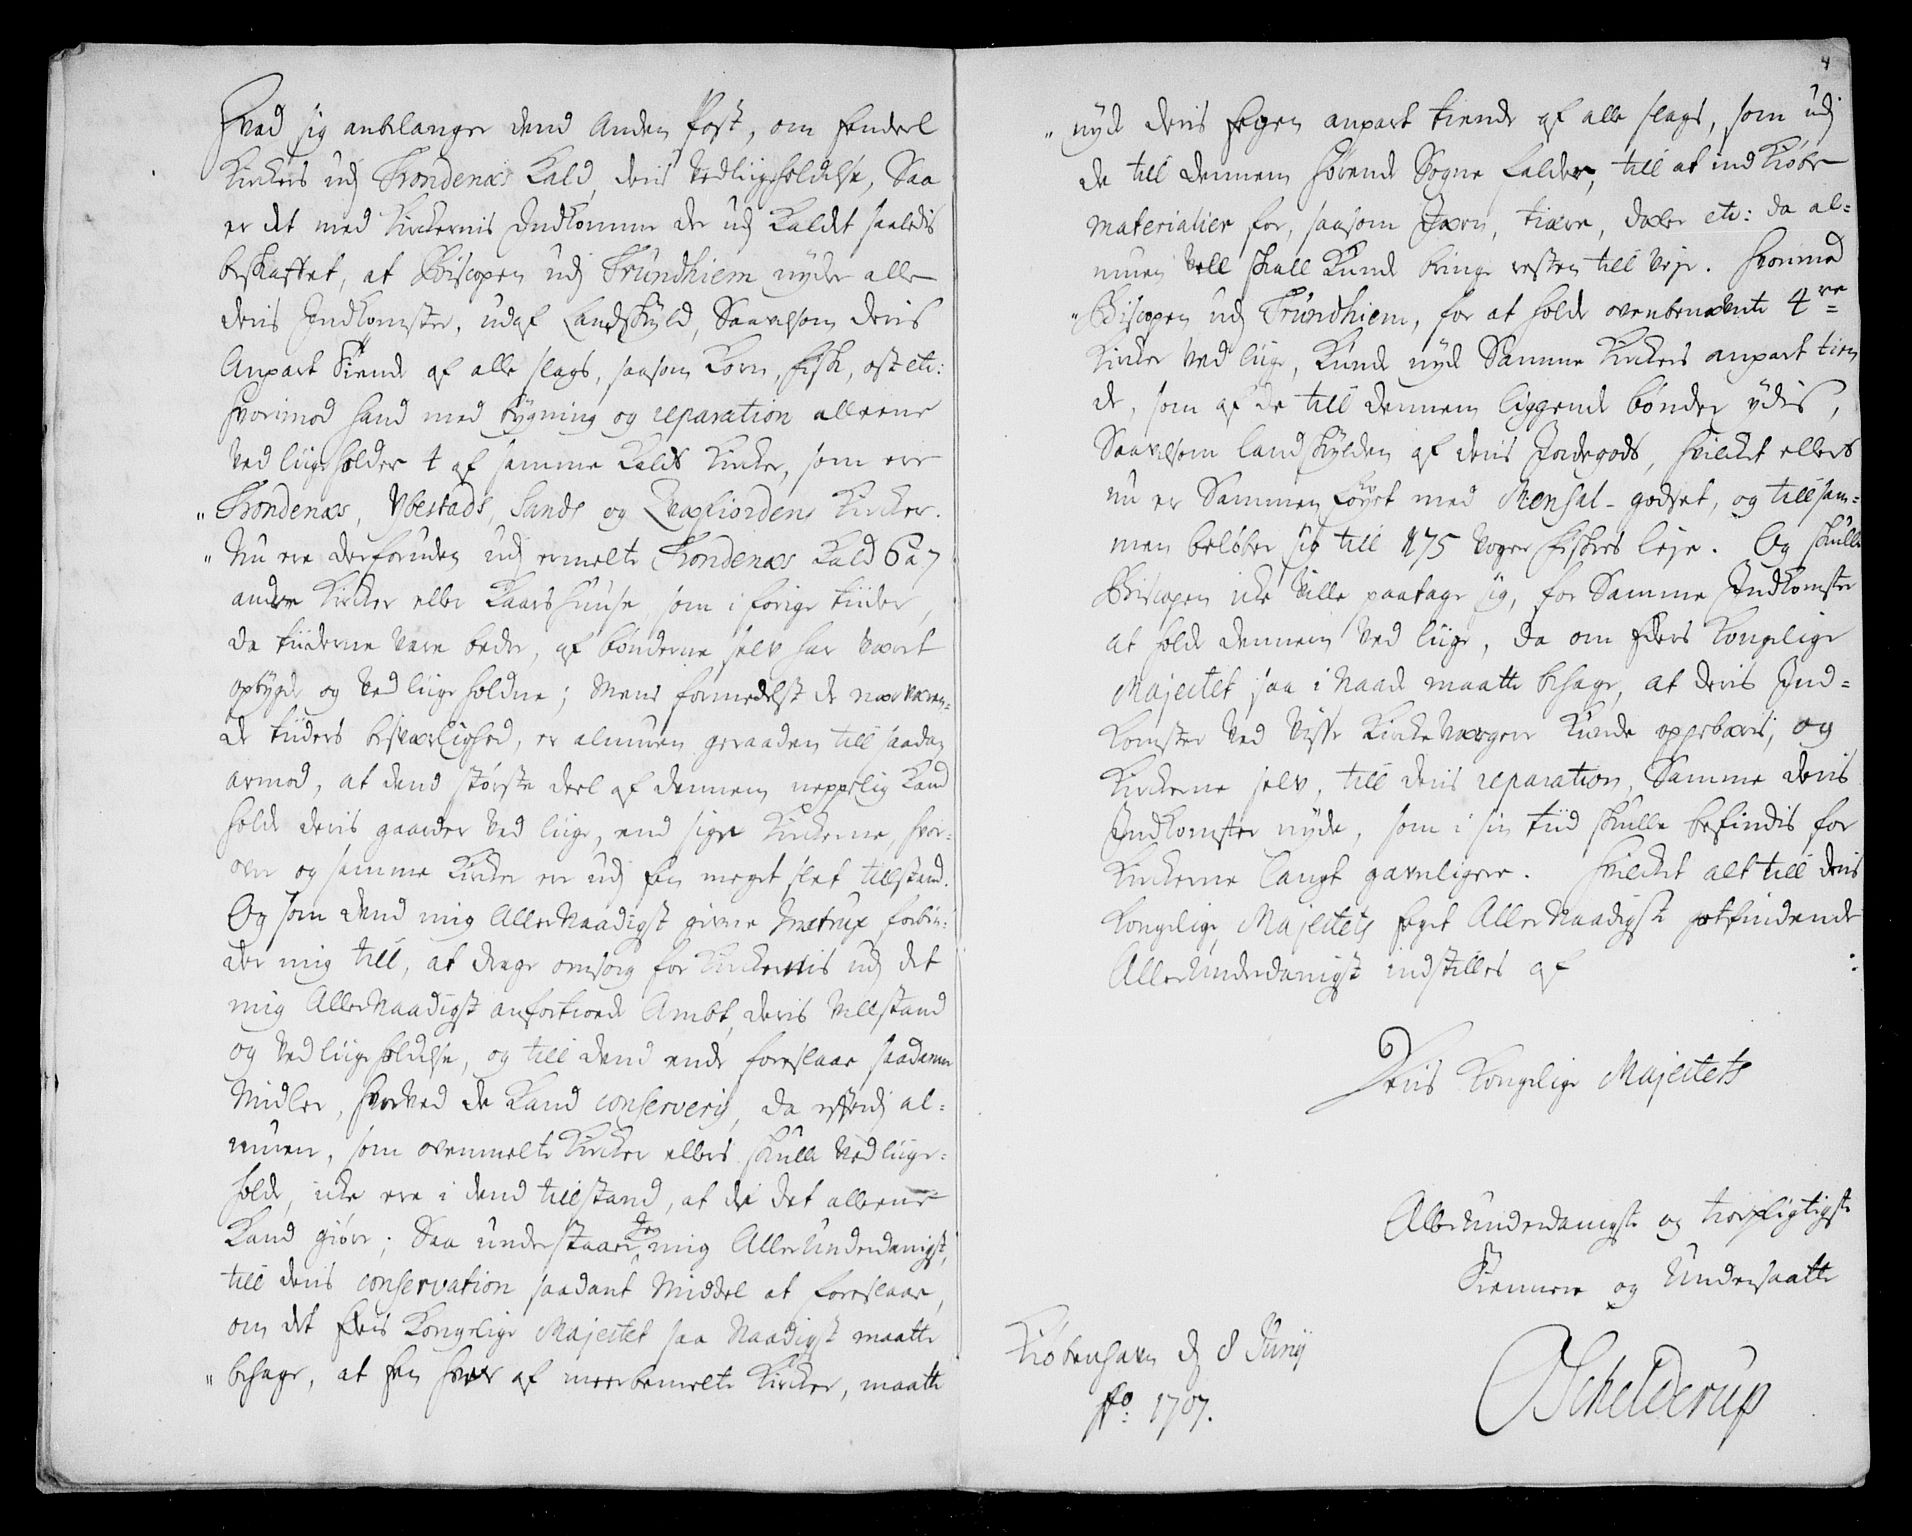 Hvad sig anbelanger dend Anden Post, om Eendeel
Kirkers udj Trondenæs Kald, deris Vedligeholdelse, Saa
er det med Kirkernis Indkomme der udj Kaldet saaledis
beskaffet, at Biscopen udj Trundhiem nyder alle
deris Indkomster, udaf Landskyld, Saavelsom deris
Anpart Tiende af alle slags, saasom Korn, fisk, ost etc:
hvorimod hand med bygning og reparation alleene
Ved liigeholder 4 af samme Kalds Kirker, som ere
" Trondenæs, Ybestads, Sands og Qvæfiordens Kirker.
" Nu ere derforuden udj ermelte Trondenæs Kald 6 a 7
andre Kirker eller Kaars Huuse, som i forige tiider,
da tiiderne vare bedre, af bønderne selv har værit
opbygde og Ved liige holdne; Mens formedelst de nærværen-
de tiiders besværlighed, er almuen geraaden till saadan
armod, at dend største deel af dennem neppelig Kand
holde deris gaarder Ved liige, end sige Kirkerne, hvor-
over og samme Kirker ere udj Een meget slet tillstand.
Og som dend mig AllerNaadigst givne Instrux forbin-
der mig till, at drage omsorg for Kirkernis udj det
mig AllerNaadigst anfortroede Ambt, deris Velstand
og Vedliigeholdelse, og till dend ende foreslaae saadanne
Midler, hvorved de Kand conserveris, da efterdj al-
muen, som ovenmelte Kirker ellers skulle Vedliige-
holde, icke ere i dend tillstand, at de det alleene
Kand giøre; Saa understaaer Jeg mig AllerUnderdanigst,
till deris conservation saadant Middel at foreslaae,
om det Eders Kongelige Majestet saa Naadigst maatte
" behage, at Een hver af meerbemelte Kirker, maatte
4
" nyde deris Egen anpart tiende af alle slags, som udj
de till dennem hørende Sogne falder, till at indKiøbe
materialier for, saasom Jærn, tiære, dæler etc: da al-
muen Vell skall Kunde bringe resten till Veje. Hvorimod
" Biscopen udj Trundhiem, for at holde ovenbenævnte 4re
Kirker Ved liige, Kunde nyde Samme Kirkers anpart tien
de, som af de till dennem liggende bønder ydis,
Saavelsom landskylden af deris Jordegods, hvilket ellers
nu er Sammen føyet med Mensal-godset, og tillsam-
men beløber sig till 175 Voger fiskes leje. Og skulle
Biscopen icke Ville paatage sig, for Samme Indkomster
at holde dennem Ved liige, da om Eders Kongelige
Majestet saa i Naade maatte behage, at deris Ind-
komster Ved Visse KirkeVærgere Kunde oppebæris, og
Kirkerne selv, till deris reparation, Samme deris
Indkomster nyde, som i sin tiid skulle befindis for
Kirkerne langt gavnligere. Hvilket alt till deris
Kongelige Majestets Eget AllerNaadigste gotfindende
AllerUnderdanigst indstilles af
Deris Kongelige Majestets
AllerUnderdanigste og troepligtigste
Tiennere og Undersaatte
Kiøbenhavn d 8 Junij
Ao: 1707.
OSchelderup